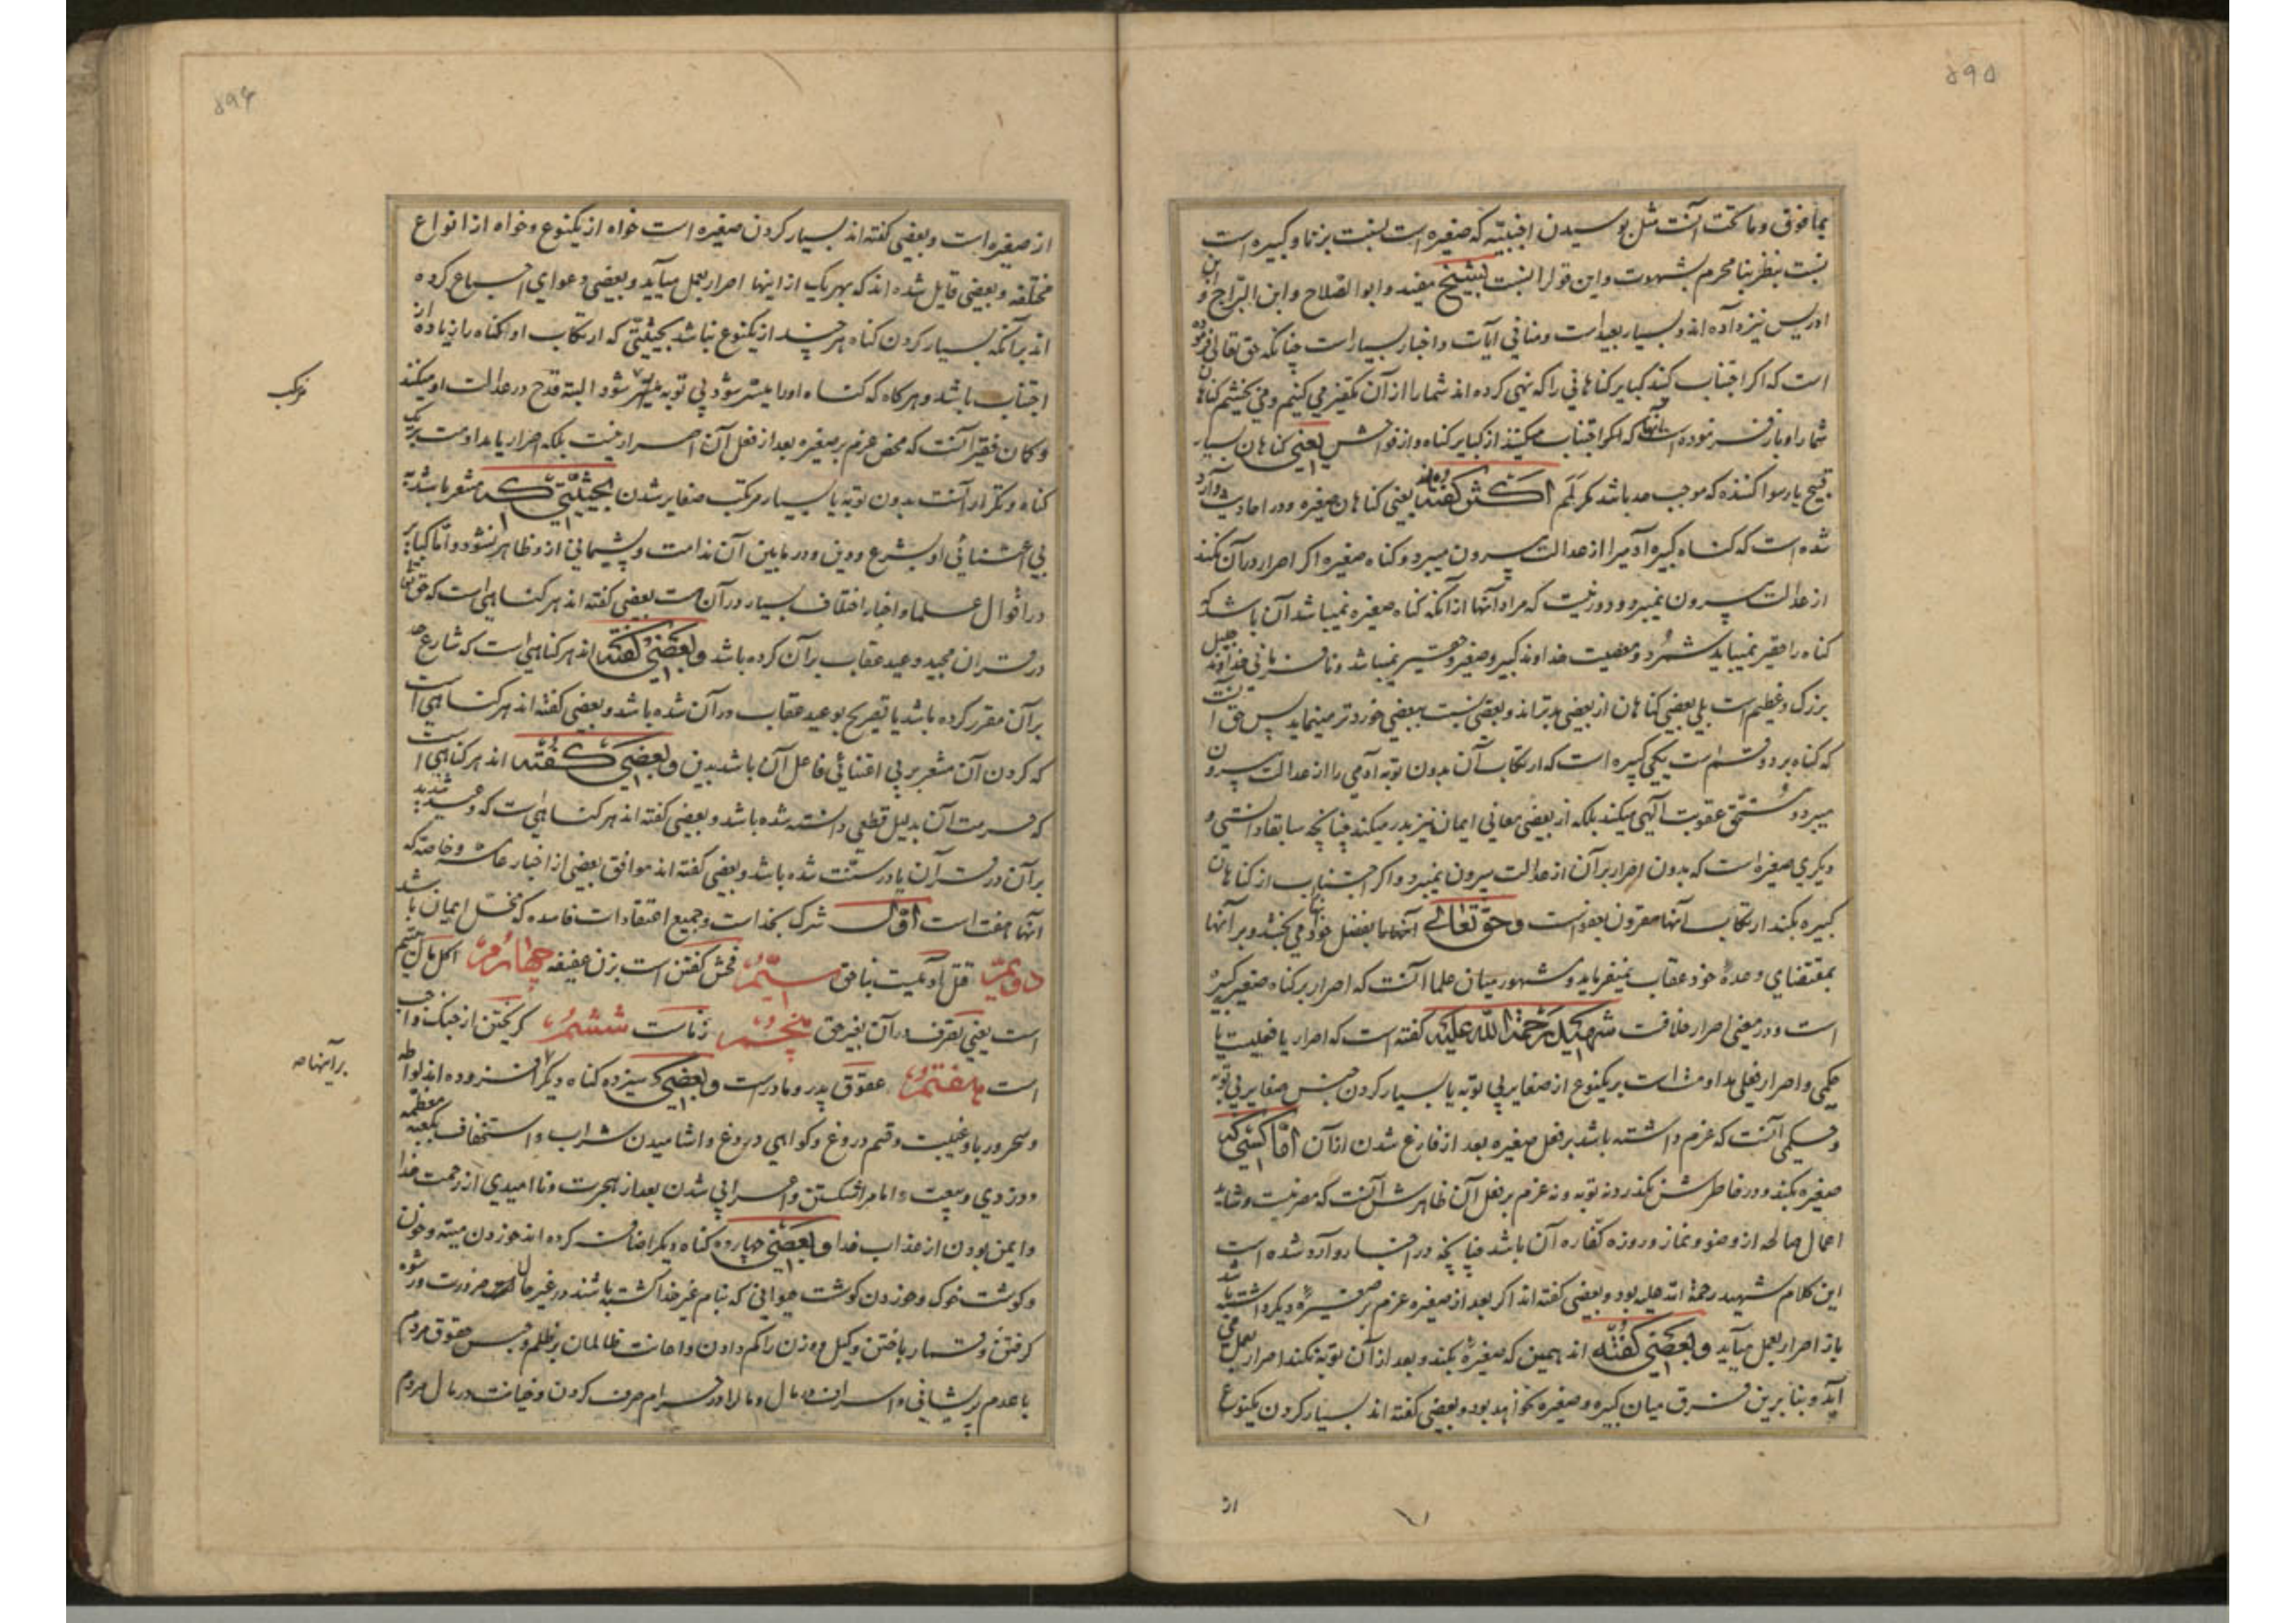 ۵۹۵
بما فوق و ما تحت آنست مثل بوسیدن اجنبیه که صغیره است نسبت بزنا و کبیره است
نسبت بنظر بنا محرم بشهوت و این قول را نسبت بشیخ مفید و ابو الصلاح و ابن البراج و ابن
ادریس نیز داده اند و بسیار بعید است و منافی آیات و اخبار بسیار است چنانکه حق تعالی فرموده
است که اگر اجتناب کنید کبایر گناهانی را که نهی کرده اند شما را از آن تکفیر می کنیم و می بخشیم گناهان
شما را و باز فرموده است آنها که اگر اجتناب میکنند از کبایر گناه و از فواحش یعنی گناهان بسیار
قبیح یا رسوا کننده که موجب حد باشد مگر لَمَم اکثر گفته اند یعنی گناهان صغیره و در احادیث وارد
شده است که گناه کبیره آدمیرا از عدالت بیرون میبرد و گناه صغیره اگر اصرار در آن نکند
از عدالت بیرون نمیبرد و دور نیست که مراد آنها از آنکه گناه صغیره نمیباشد آن باشد که
گناه را حقیر نمیباید شمرد و معصیت خداوند کبیر و صغیر و حقیر نمیباشد و نافرمانی خداوند جلیل
بزرگ و عظیم است بلی بعضی گناهان از بعضی بدتراند و بعضی نسبت ببعضی خوردتر مینماید پس حق آنست
که گناه بر دو قسم است یکی کبیره است که ارتکاب آن بدون توبه آدمی را از عدالت بیرون
میبرد و مستحق عقوبت آلهی میکند بلکه از بعضی معانی ایمان نیز بدر میکند چنانچه سابقا دانستی و
دیگری صغیره است که بدون اصرار بر آن از عدالت بیرون نمیبرد و اگر اجتناب از گناهان
کبیره بکند ارتکاب آنها مقرون بعفو است و حق تعالی آنها را بفضل خود می بخشد و بر آنها
بمقتضای وعدۀ خود عقاب نمیفرماید و مشهور میان علما آنست که اصرار بر گناه صغیره کبیره
است و در معنی اصرار خلافست شهید رحمة الله علیه گفته است که اصرار یا فعلیست یا
حکمی و اصرار فعلی مداومت است بر یکنوع از صغایر بی توبه یا بسیار کردن جنس صغایر بی توبه
و حکمی آنست که عزم داشته باشد بر فعل صغیره بعد از فارغ شدن از آن امّا کسی که
صغیره بکند و در خاطرش نگذرد نه توبه و نه عزم بر فعل آن ظاهرش آنست که مضر نیست و شاید
اعمال صالحه از وضو و نماز و روزه کفاره آن باشد چنانچه در اخبار وارد شده است
این کلام شهید رحمة الله علیه بود و بعضی گفته اند اگر بعد از صغیره عزم بر صغیرۀ دیگر داشته باشد
باز اصرار بعمل میآید و بعضی گفته اند همین که صغیرۀ بکند و بعد از آن توبه نکند اصرار بعمل می
آید و بنا برین فرق میان کبیره و صغیره نخواهد بود و بعضی گفته اند بسیار کردن یکنوع
از
۵۹۶
از صغیره است و بعضی گفته اند بسیار کردن صغیره است خواه از یکنوع و خواه از انواع
مختلفه و بعضی قایل شده اند که بهر یک از اینها اصرار بعمل میآید و بعضی دعوای اجماع کرده
اند بر آنکه بسیار کردن گناه هر چند از یکنوع نباشد بحیثیتی که ارتکاب او گناه را زیاده از
اجتناب باشد و هرگاه که گناه او را میسر شود بی توبه شود البته قدح در عدالت او میکند
و گمان فقیر آنست که محض عزم بر صغیره بعد از فعل آن اصرار نیست بلکه اصرار یا مداومت بر یک
گناه و تکرار آنست بدون توبه یا بسیار مرتکب صغایر شدن بحیثیتی که مشعر باشد به
بی اعتنائی او بشرع و دین و در ما بین آن ندامت و پشیمانی از او ظاهر نشود و اما کبایر
در اقوال علما و اخبار اختلاف بسیار در آن هست بعضی گفته اند هر گناهی است که حق تعالی
در قران مجید وعید عقاب بر آن کرده باشد و بعضی گفته اند هر گناهی است که شارع حد
بر آن مقرر کرده باشد یا تصریح بوعید عقاب در آن شده باشد و بعضی گفته اند هر گناهی است
که کردن آن مشعر بر بی اعتنائی فاعل آن باشد بدین و بعضی گفته اند هر گناهی است
که حرمت آن بدلیل قطعی دانسته شده باشد و بعضی گفته اند هر گناهی است که وعید شدید
بر آن در قرآن یا در سنّت شده باشد و بعضی گفته اند موافق بعضی از اخبار عامه و خاصه که
آنها هفت است اوّل شرک بخداست و جمیع اعتقادات فاسده که مخل ایمان باشد
دویّم قتل آدمیست بناحق سیّم فحش گفتن است بزن عفیفه چهارم اکل مال یتیم
است یعنی تصرف در آن بغیر حق پنجم زناست ششم گریختن از جنگ واجب
است هفتم عقوق پدر و مادرست و بعضی سیزده گناه دیگر افزوده اند لواطه
و سحر و ربا و غیبت و قسم دروغ و گواهی دروغ و اشامیدن شراب و استخفاف بکعبه معظمه
و دزدی و بیعت امام را شکستن و اعرابی شدن بعد از هجرت و ناامیدی از رحمت خدا
و ایمن بودن از عذاب خدا و بعضی چهارده گناه دیگر اضافت کرده اند خوردن میته و خون
و گوشت خوک و خوردن گوشت حیوانی که بنام غیر خدا کشته باشند در غیر حال ضرورت و رشوه
گرفتن و قمار باختن و کیل و وزن را کم دادن و اعانت ظالمان بر ظلم و حبس حقوق مردم
با عدم پریشانی و اسراف در مال و مال را در حرام صرف کردن و خیانت در مال مردم
بر آنها صه